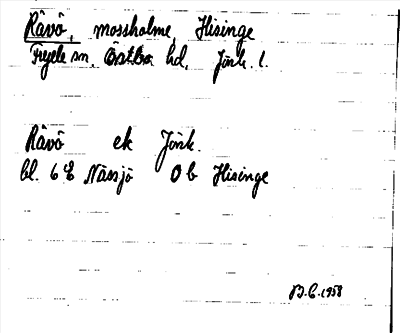 Råvö, mossholme, Hisinge
Fryele sn, Östbo hd, Jönk. l.
Råvö ek Jönk.
bl. 6 E Nässjö O b Hisinge
B.E. 1958